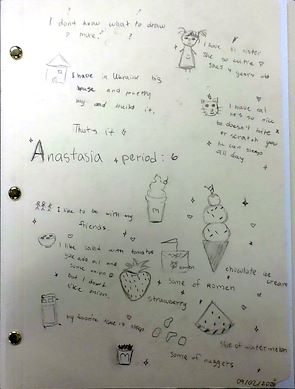 I don't know what to draw
more.
I have lil sister
She so cutie
She's 4 years old
I have in Ukraine big
house and pretty
my dad build it.
I have cat
he's so nice
he doesn't bite
or scratch you
he can sleep
all day
That's it
Anastasia period: 6
I like to be with my
friends.
I like salad with tomatos
you add oil and
some onion
but I don't
like onion.
some of Ramen
strawberry
chocolate ice cream
slice of watermelon
my favorite is
some of nuggets